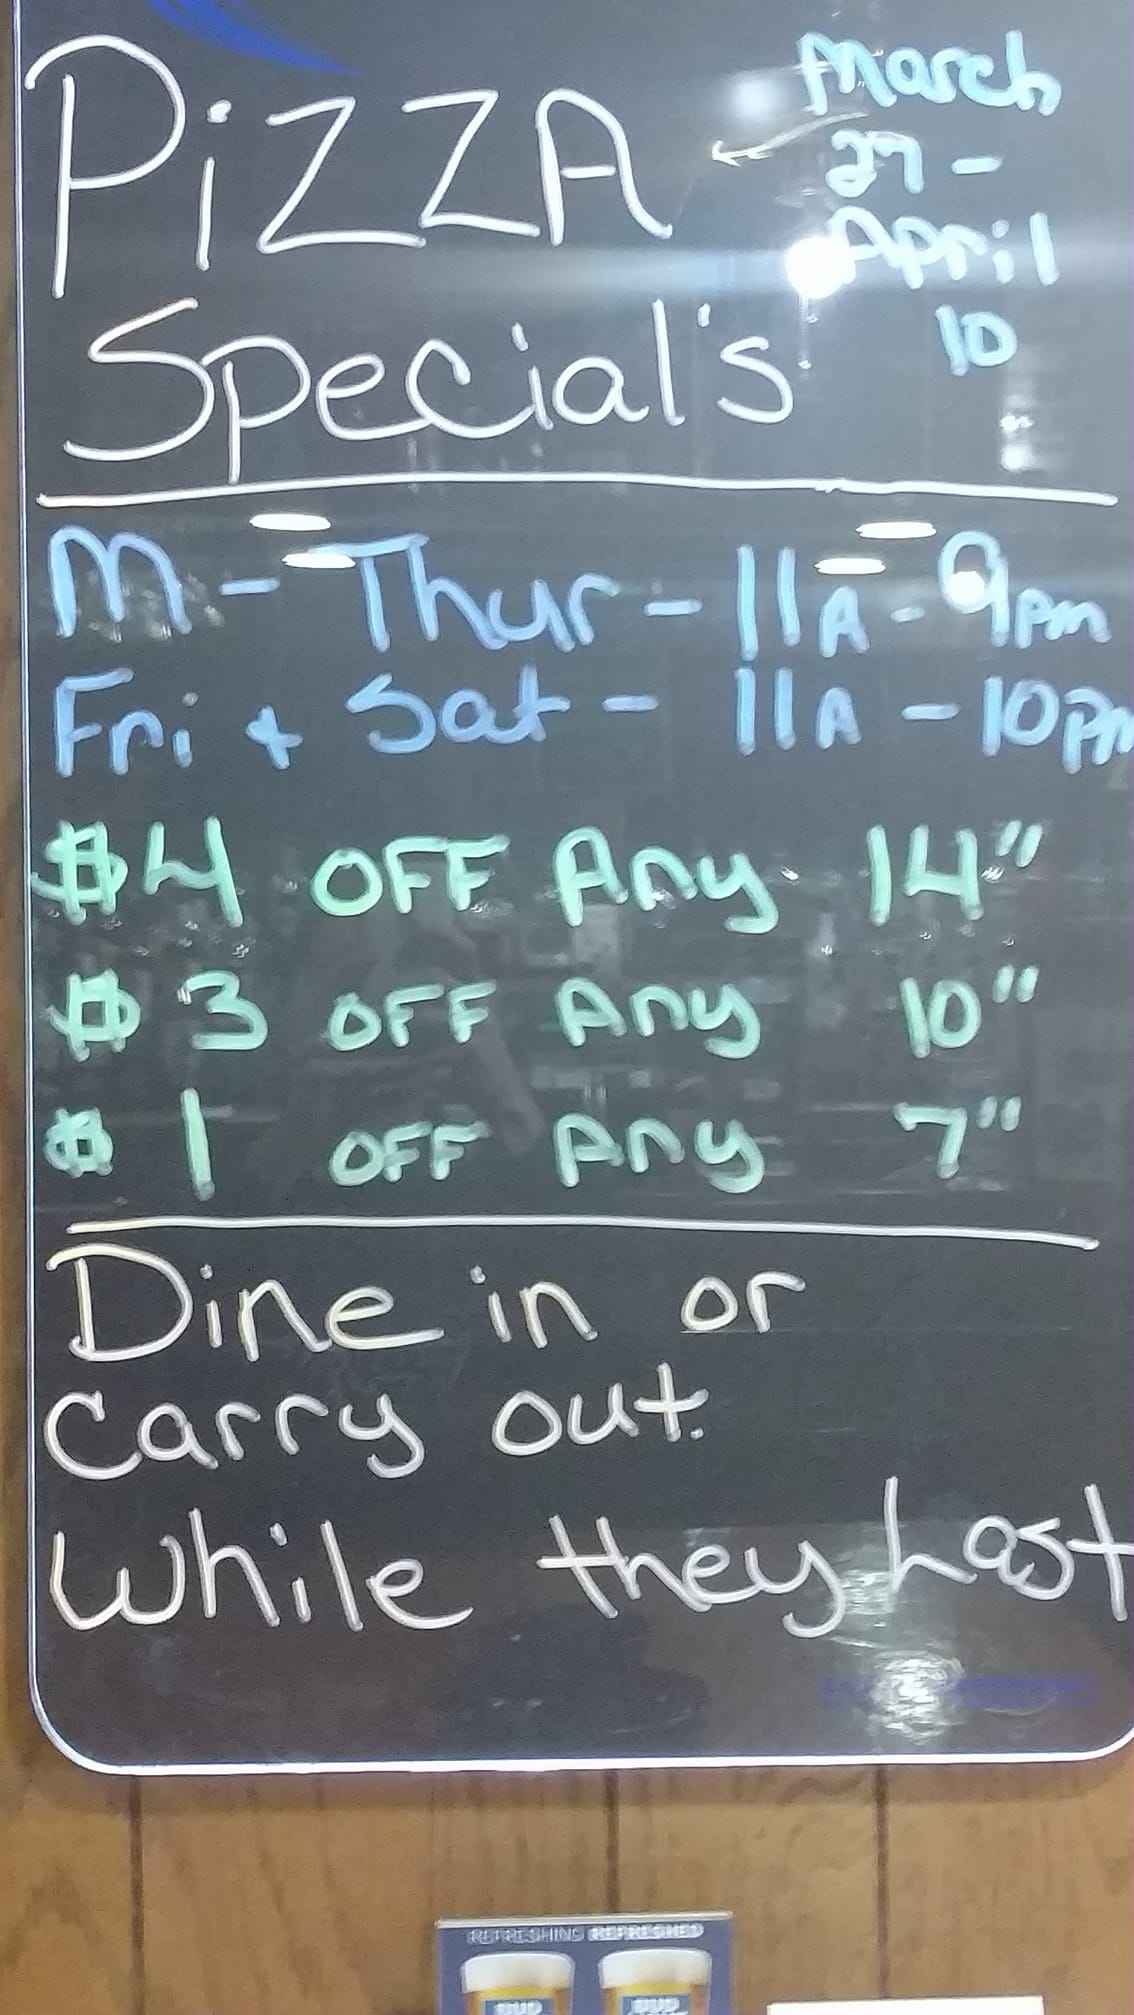 PiZZA
Special's
March
27 -
April
10
M - Thur - 11A - 9pm
Fri + Sat - 11A - 10pm
$4 OFF Any 14"
$3 OFF Any 10"
$1 OFF Any 7"
Dine in or
Carry out.
While they Last
REFRESHING REFRESHED
BUD BUD